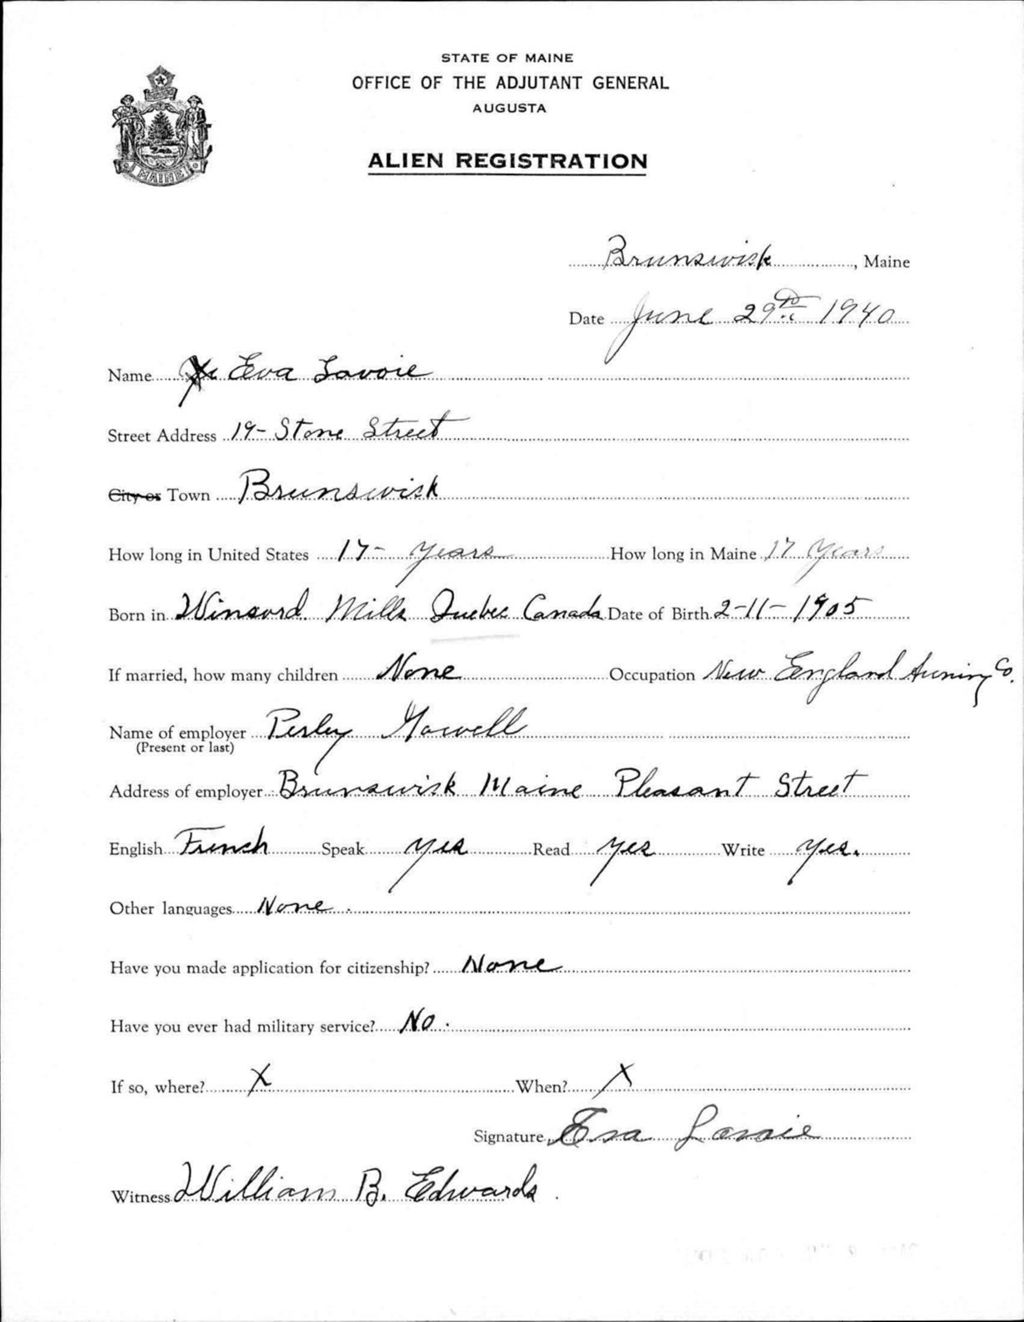 STATE OF MAINE
OFFICE OF THE ADJUTANT GENERAL
AUGUSTA
MAINE
ALIEN REGISTRATION
Brunswick, Maine
Date June 29th 1940
Name Eva Lavoie
Street Address 19- Stone Street
City or Town Brunswick
How long in United States 17- years How long in Maine 17 Years
Born in Winsord. Mills Quebec Canada Date of Birth 2-11-1905
If married, how many children None Occupation New England Co.
Name of employer Perley Gowell
(Present or last)
Address of employer Brunswick Maine Pleasant Street
English French Speak yes Read yes Write yes.
Other languages None.
Have you made application for citizenship? None
Have you ever had military service? No.
If so, where? X When? X
Signature Eva Lavoie
Witness William B. Edwards.